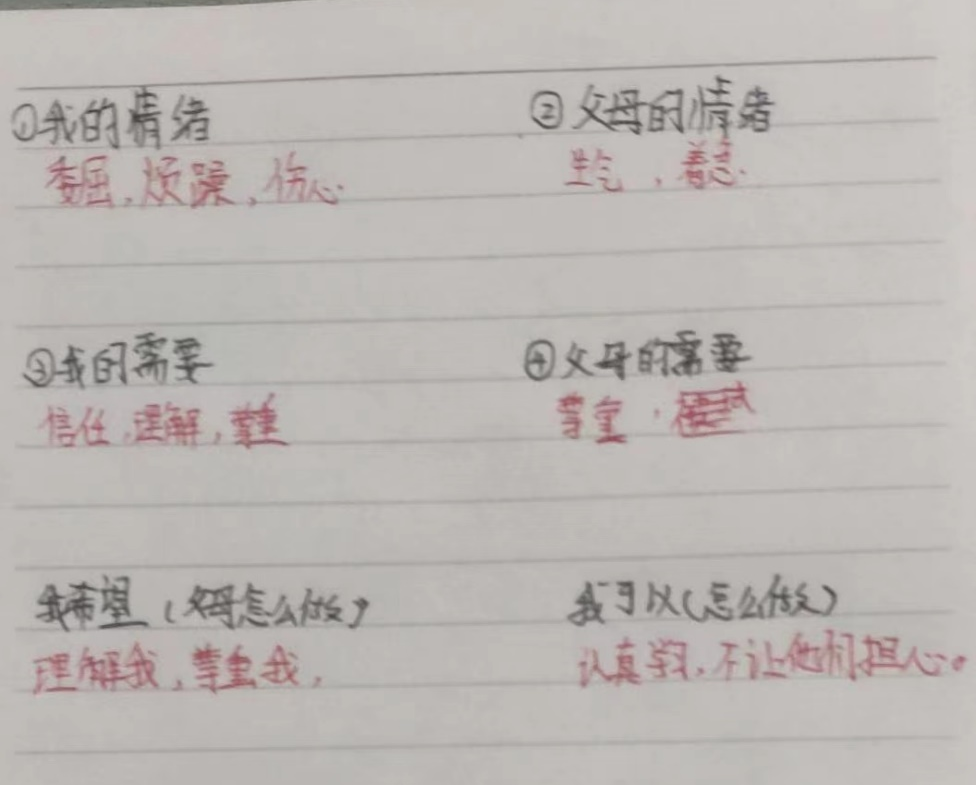 ①我的情绪
②父母的情绪
委屈,烦躁,伤心.
生气,着急.
③我的需要
④父母的需要
信任,理解,尊重
尊重.
我希望(父母怎么做)
我可以(怎么做)
理解我,尊重我,
认真学习,不让他们担心。